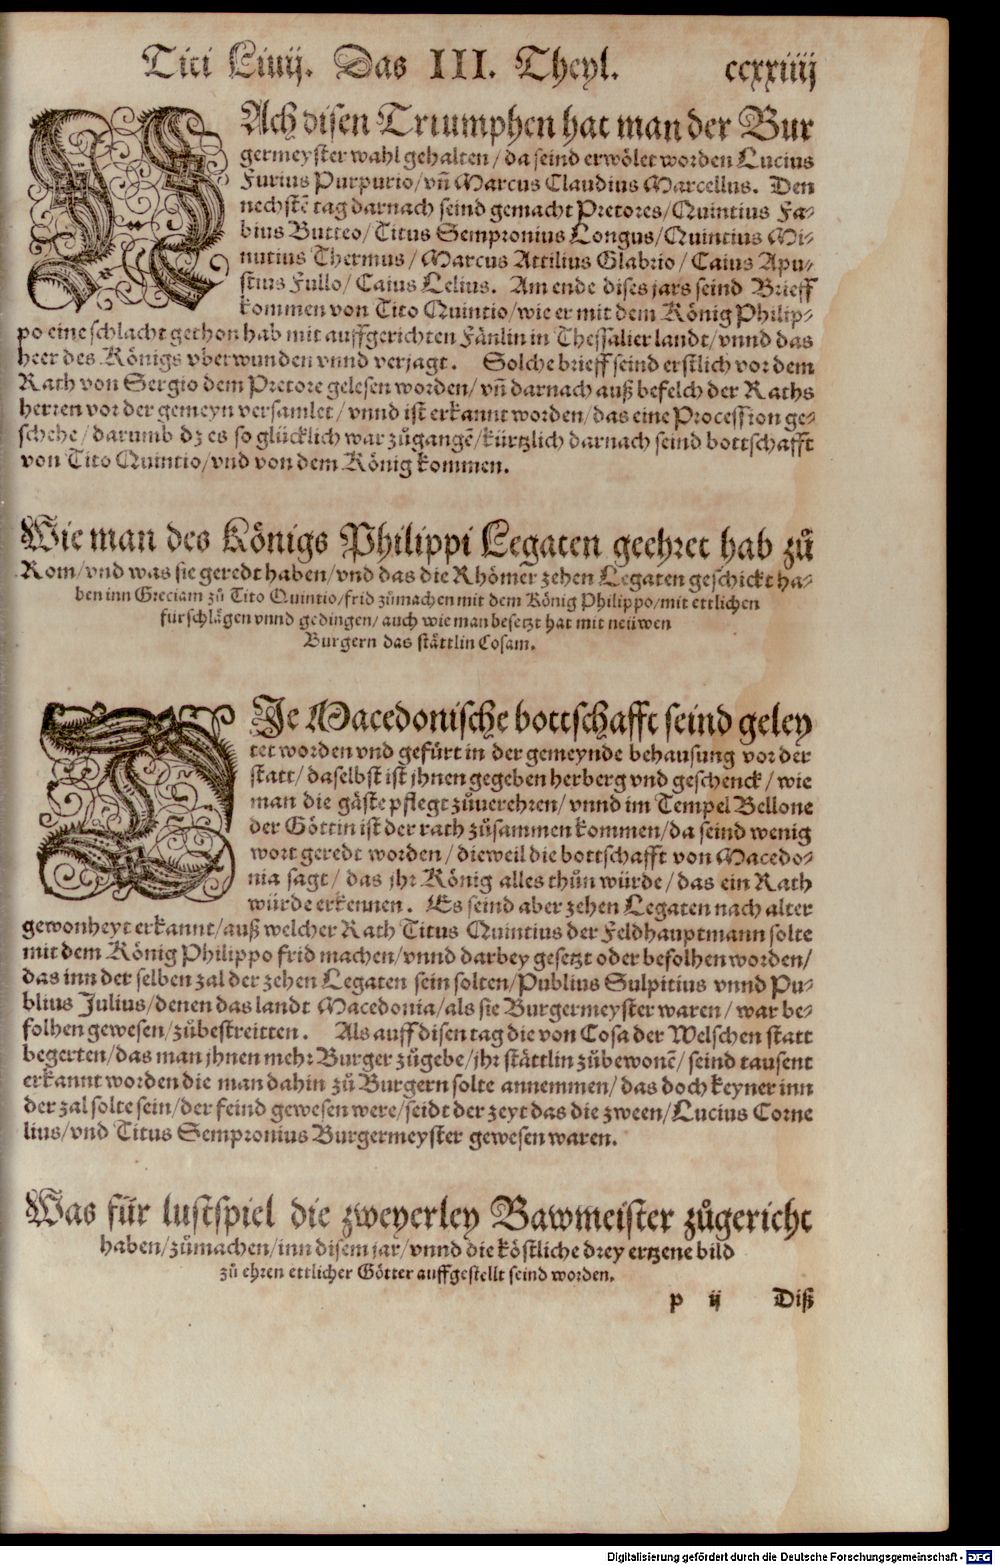 Titi Liuij. Das III. Theyl. ccxxiiij
NAch disen Triumphen hat man der Bur
germeyster wahl gehalten/da seind erwölet worden Lucius
Furius Purpurio/vñ Marcus Claudius Marcellus. Den
nechstē tag darnach seind gemacht Pretores/Quintius Fa-
bius Butteo/Titus Sempronius Longus/Quintius Mi-
nutius Thermus/Marcus Attilius Glabrio/Caius Apu-
stius Fullo/Caius Lelius. Am ende dises jars seind Brieff
kommen von Tito Quintio/wie er mit dem König Philip-
po eine schlacht gethon hab mit auffgerichten Fänlin in Thessalier landt/vnnd das
heer des Königs vberwunden vnnd verjagt. Solche brieff seind erstlich vor dem
Rath von Sergio dem Pretore gelesen worden/vñ darnach auß befelch der Raths
herren vor der gemeyn versamlet/vnnd ist erkannt worden/das eine Procession ge-
schehe/darumb dz es so glücklich war zůgangē/kürtzlich darnach seind bottschafft
von Tito Quintio/vnd von dem König kommen.
Wie man des Königs Philippi Legaten geehret hab zů
Rom/vnd was sie geredt haben/vnd das die Rhömer zehen Legaten geschickt ha-
ben inn Greciam zů Tito Quintio/frid zůmachen mit dem König Philippo/mit ettlichen
fürschlägen vnnd gedingen/auch wie man besetzt hat mit neüwen
Burgern das stättlin Cosam.
DJe Macedonische bottschafft seind geley
tet worden vnd gefürt in der gemeynde behausung vor der
statt/daselbst ist jhnen gegeben herberg vnd geschenck/wie
man die gäste pflegt zůuerehren/vnnd im Tempel Bellone
der Göttin ist der rath zůsammen kommen/da seind wenig
wort geredt worden/dieweil die bottschafft von Macedo-
nia sagt/das jhr König alles thůn würde/das ein Rath
würde erkennen. Es seind aber zehen Legaten nach alter
gewonheyt erkannt/auß welcher Rath Titus Quintius der Feldhauptmann solte
mit dem König Philippo frid machen/vnnd darbey gesetzt oder befolhen worden/
das inn der selben zal der zehen Legaten sein solten/Publius Sulpitius vnnd Pu-
blius Julius/denen das landt Macedonia/als sie Burgermeyster waren/war be-
folhen gewesen/zůbestreitten. Als auff disen tag die von Cosa der Welschen statt
begerten/das man jhnen mehr Burger zůgebe/jhr stättlin zůbewonē/seind tausent
erkannt worden die man dahin zů Burgern solte annemmen/das doch keyner inn
der zal solte sein/der feind gewesen were/seidt der zeyt das die zween/Lucius Corne
lius/vnd Titus Sempronius Burgermeyster gewesen waren.
Was für lustspiel die zweyerley Bawmeister zůgericht
haben/zůmachen/inn disem jar/vnnd die köstliche drey ertzene bild
zů ehren ettlicher Götter auffgestellt seind worden.
p ij Diß
Digitalisierung gefördert durch die Deutsche Forschungsgemeinschaft - DFG